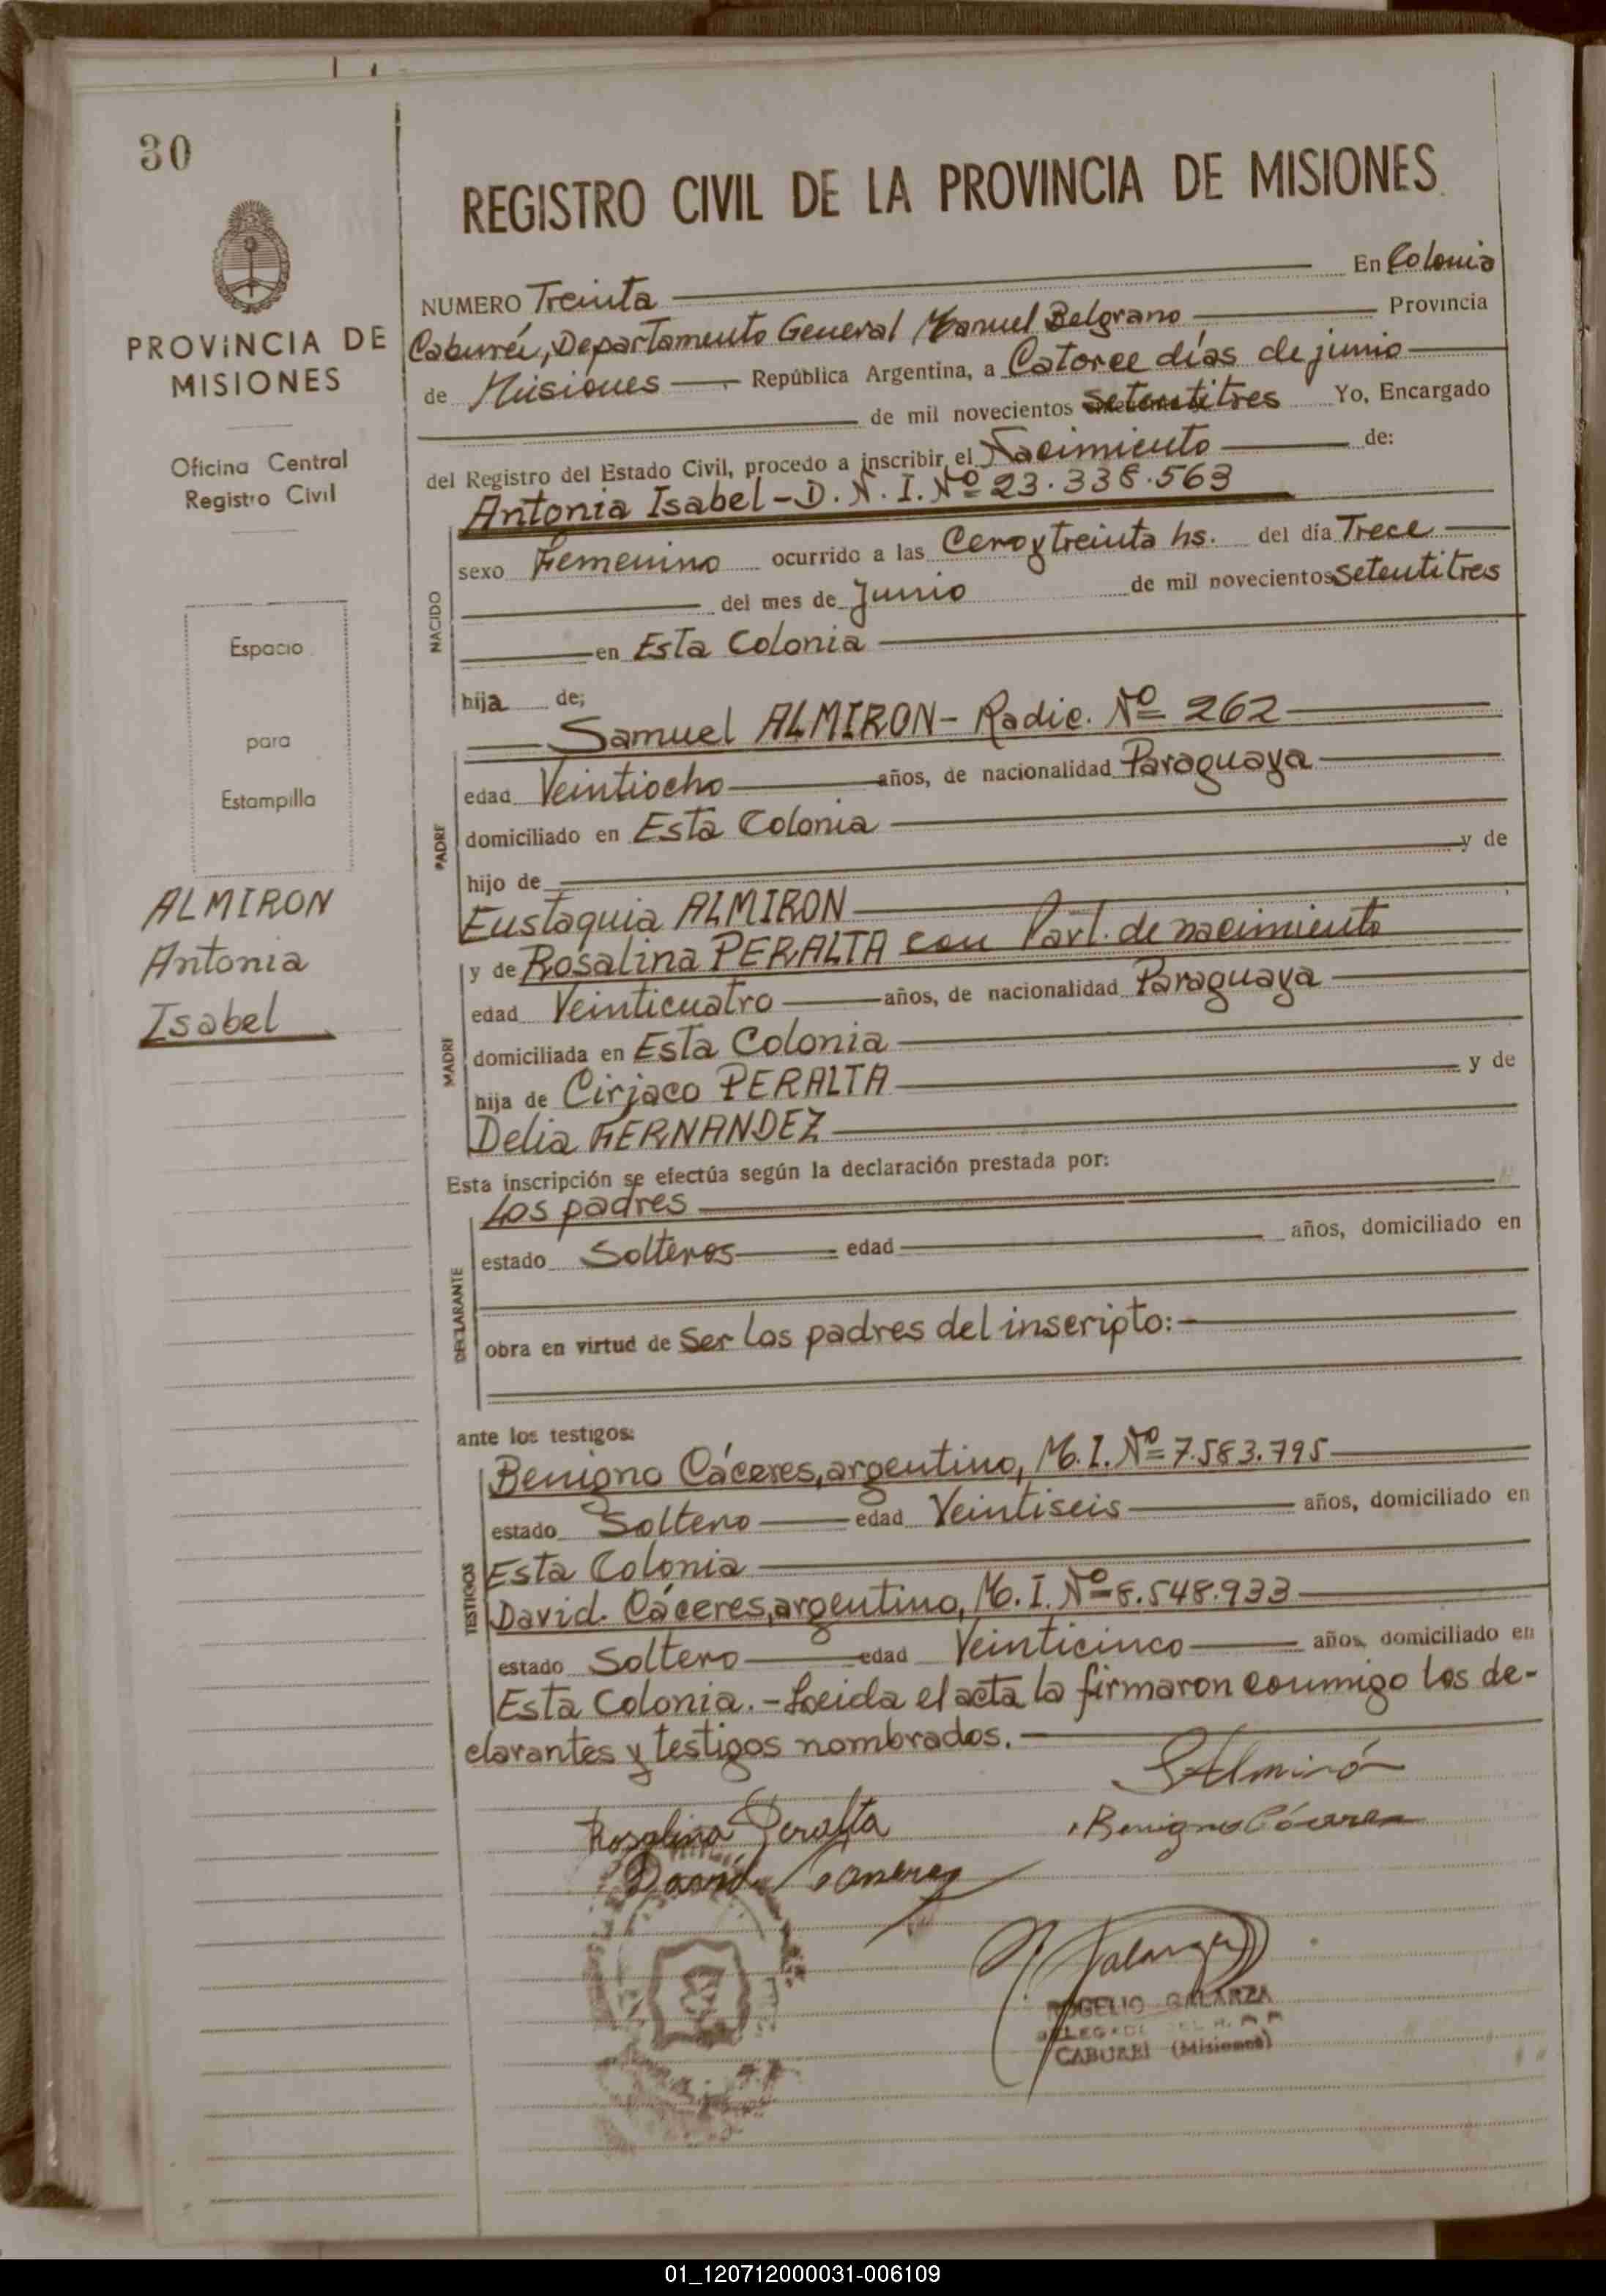 30
REGISTRO CIVIL DE LA PROVINCIA DE MISIONES
PROVINCIA DE
MISIONES
Oficina Central
Registro Civil
Espacio
para
Estampilla
ALMIRON
Antonia
Isabel
NUMERO Treinta En Colonia
Caburéi, Departamento General Manuel Belgrano Provincia
de Misiones República Argentina, a Catorce días de junio
de mil novecientos setentitres Yo, Encargado
del Registro del Estado Civil, procedo a inscribir el Nacimiento de:
Antonia Isabel - D. N. I. Nº 23.338.563
NACIDO
sexo Femenino ocurrido a las Cero y treinta hs. del día Trece
del mes de Junio de mil novecientos setentitres
en Esta Colonia
hija de;
Samuel ALMIRON - Radic. Nº 262
PADRE
edad Veintiocho años, de nacionalidad Paraguaya
domiciliado en Esta Colonia
hijo de y de
Eustaquia ALMIRON
y de Rosalina PERALTA con Part. de nacimiento
MADRE
edad Veinticuatro años, de nacionalidad Paraguaya
domiciliada en Esta Colonia
hija de Cirjaco PERALTA y de
Delia FERNANDEZ
Esta inscripción se efectúa según la declaración prestada por:
Los padres
DECLARANTE
estado Solteros edad años, domiciliado en
obra en virtud de Ser los padres del inscripto:-
ante los testigos:
Benigno Cáceres, argentino, M. I. Nº 7.583.795
TESTIGOS
estado Soltero edad Veintiseis años, domiciliado en
Esta Colonia
David Cáceres, argentino, M. I. Nº 8.548.933
estado Soltero edad Veinticinco años, domiciliado en
Esta Colonia.- Leida el acta la firmaron conmigo los de-
clarantes y testigos nombrados.
SAlmirón
Rosalina Peralta
Benigno Cáceres
David Caseres
R Galarza
ROGELIO GALARZA
CABUREI (Misiones)
01_120712000031-006109